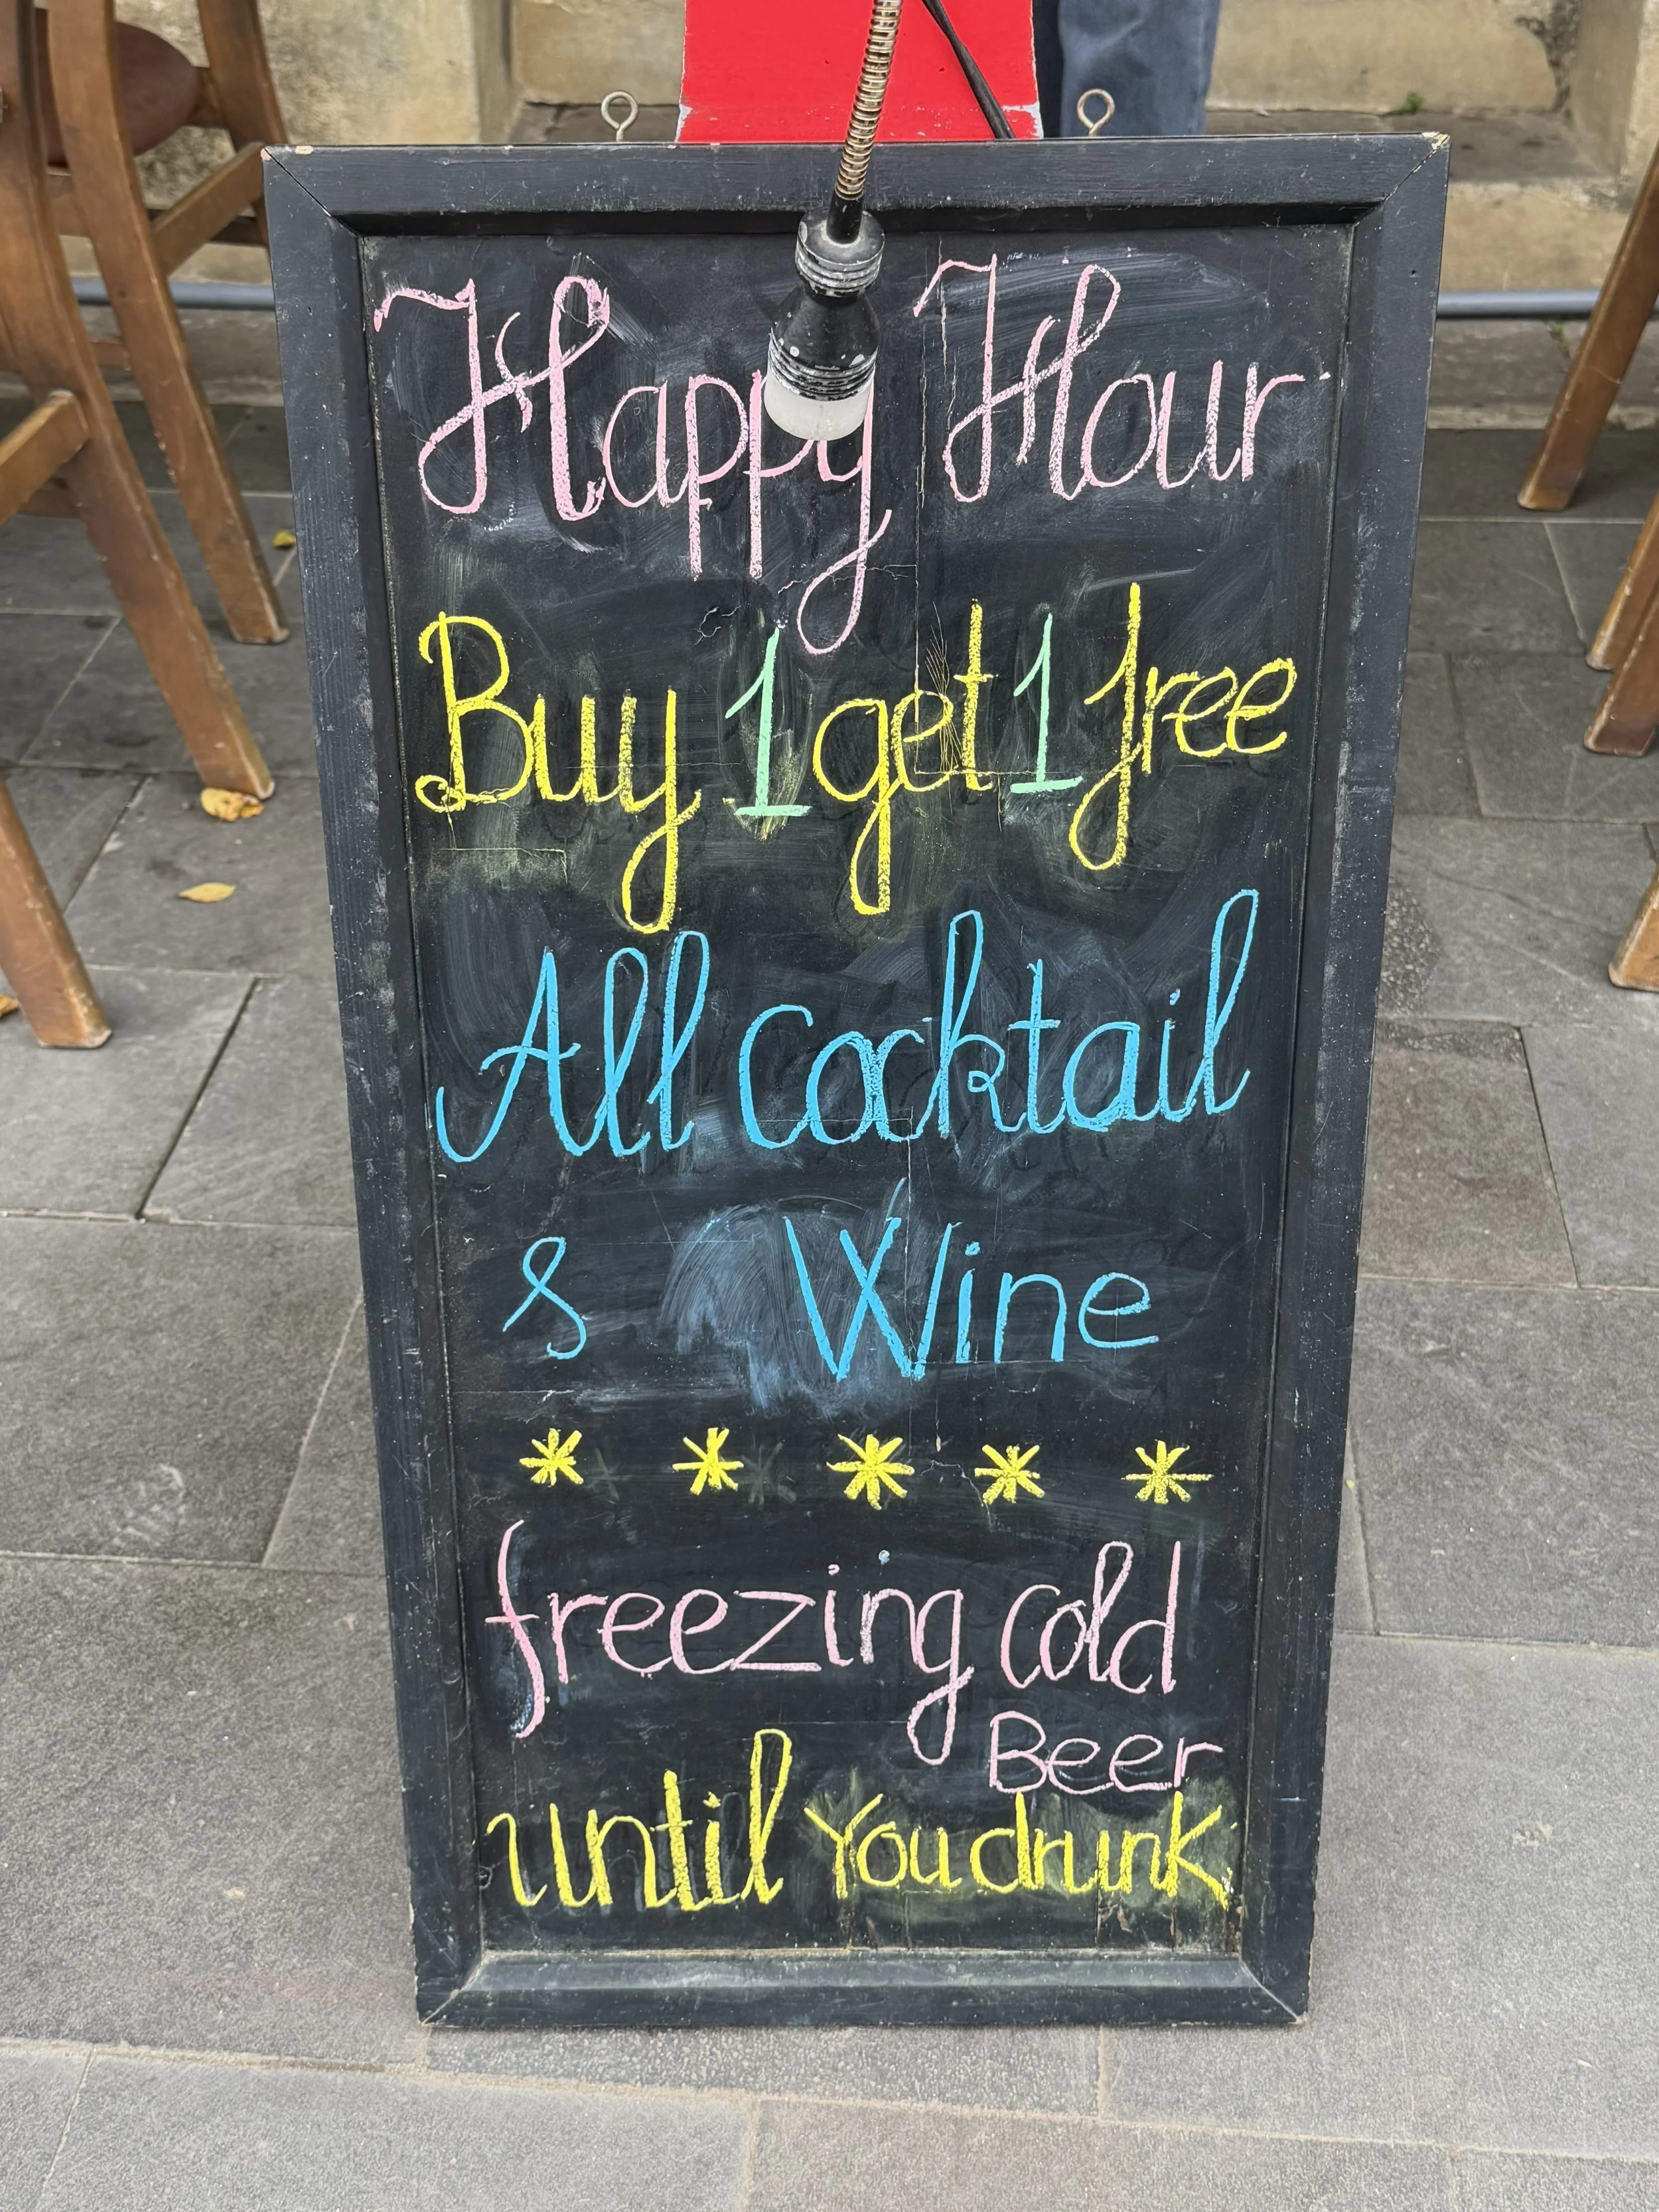 Happy Hour
Buy 1 get 1 free
All Cocktail
& Wine
* * * * *
freezing cold
Beer
until You drunk